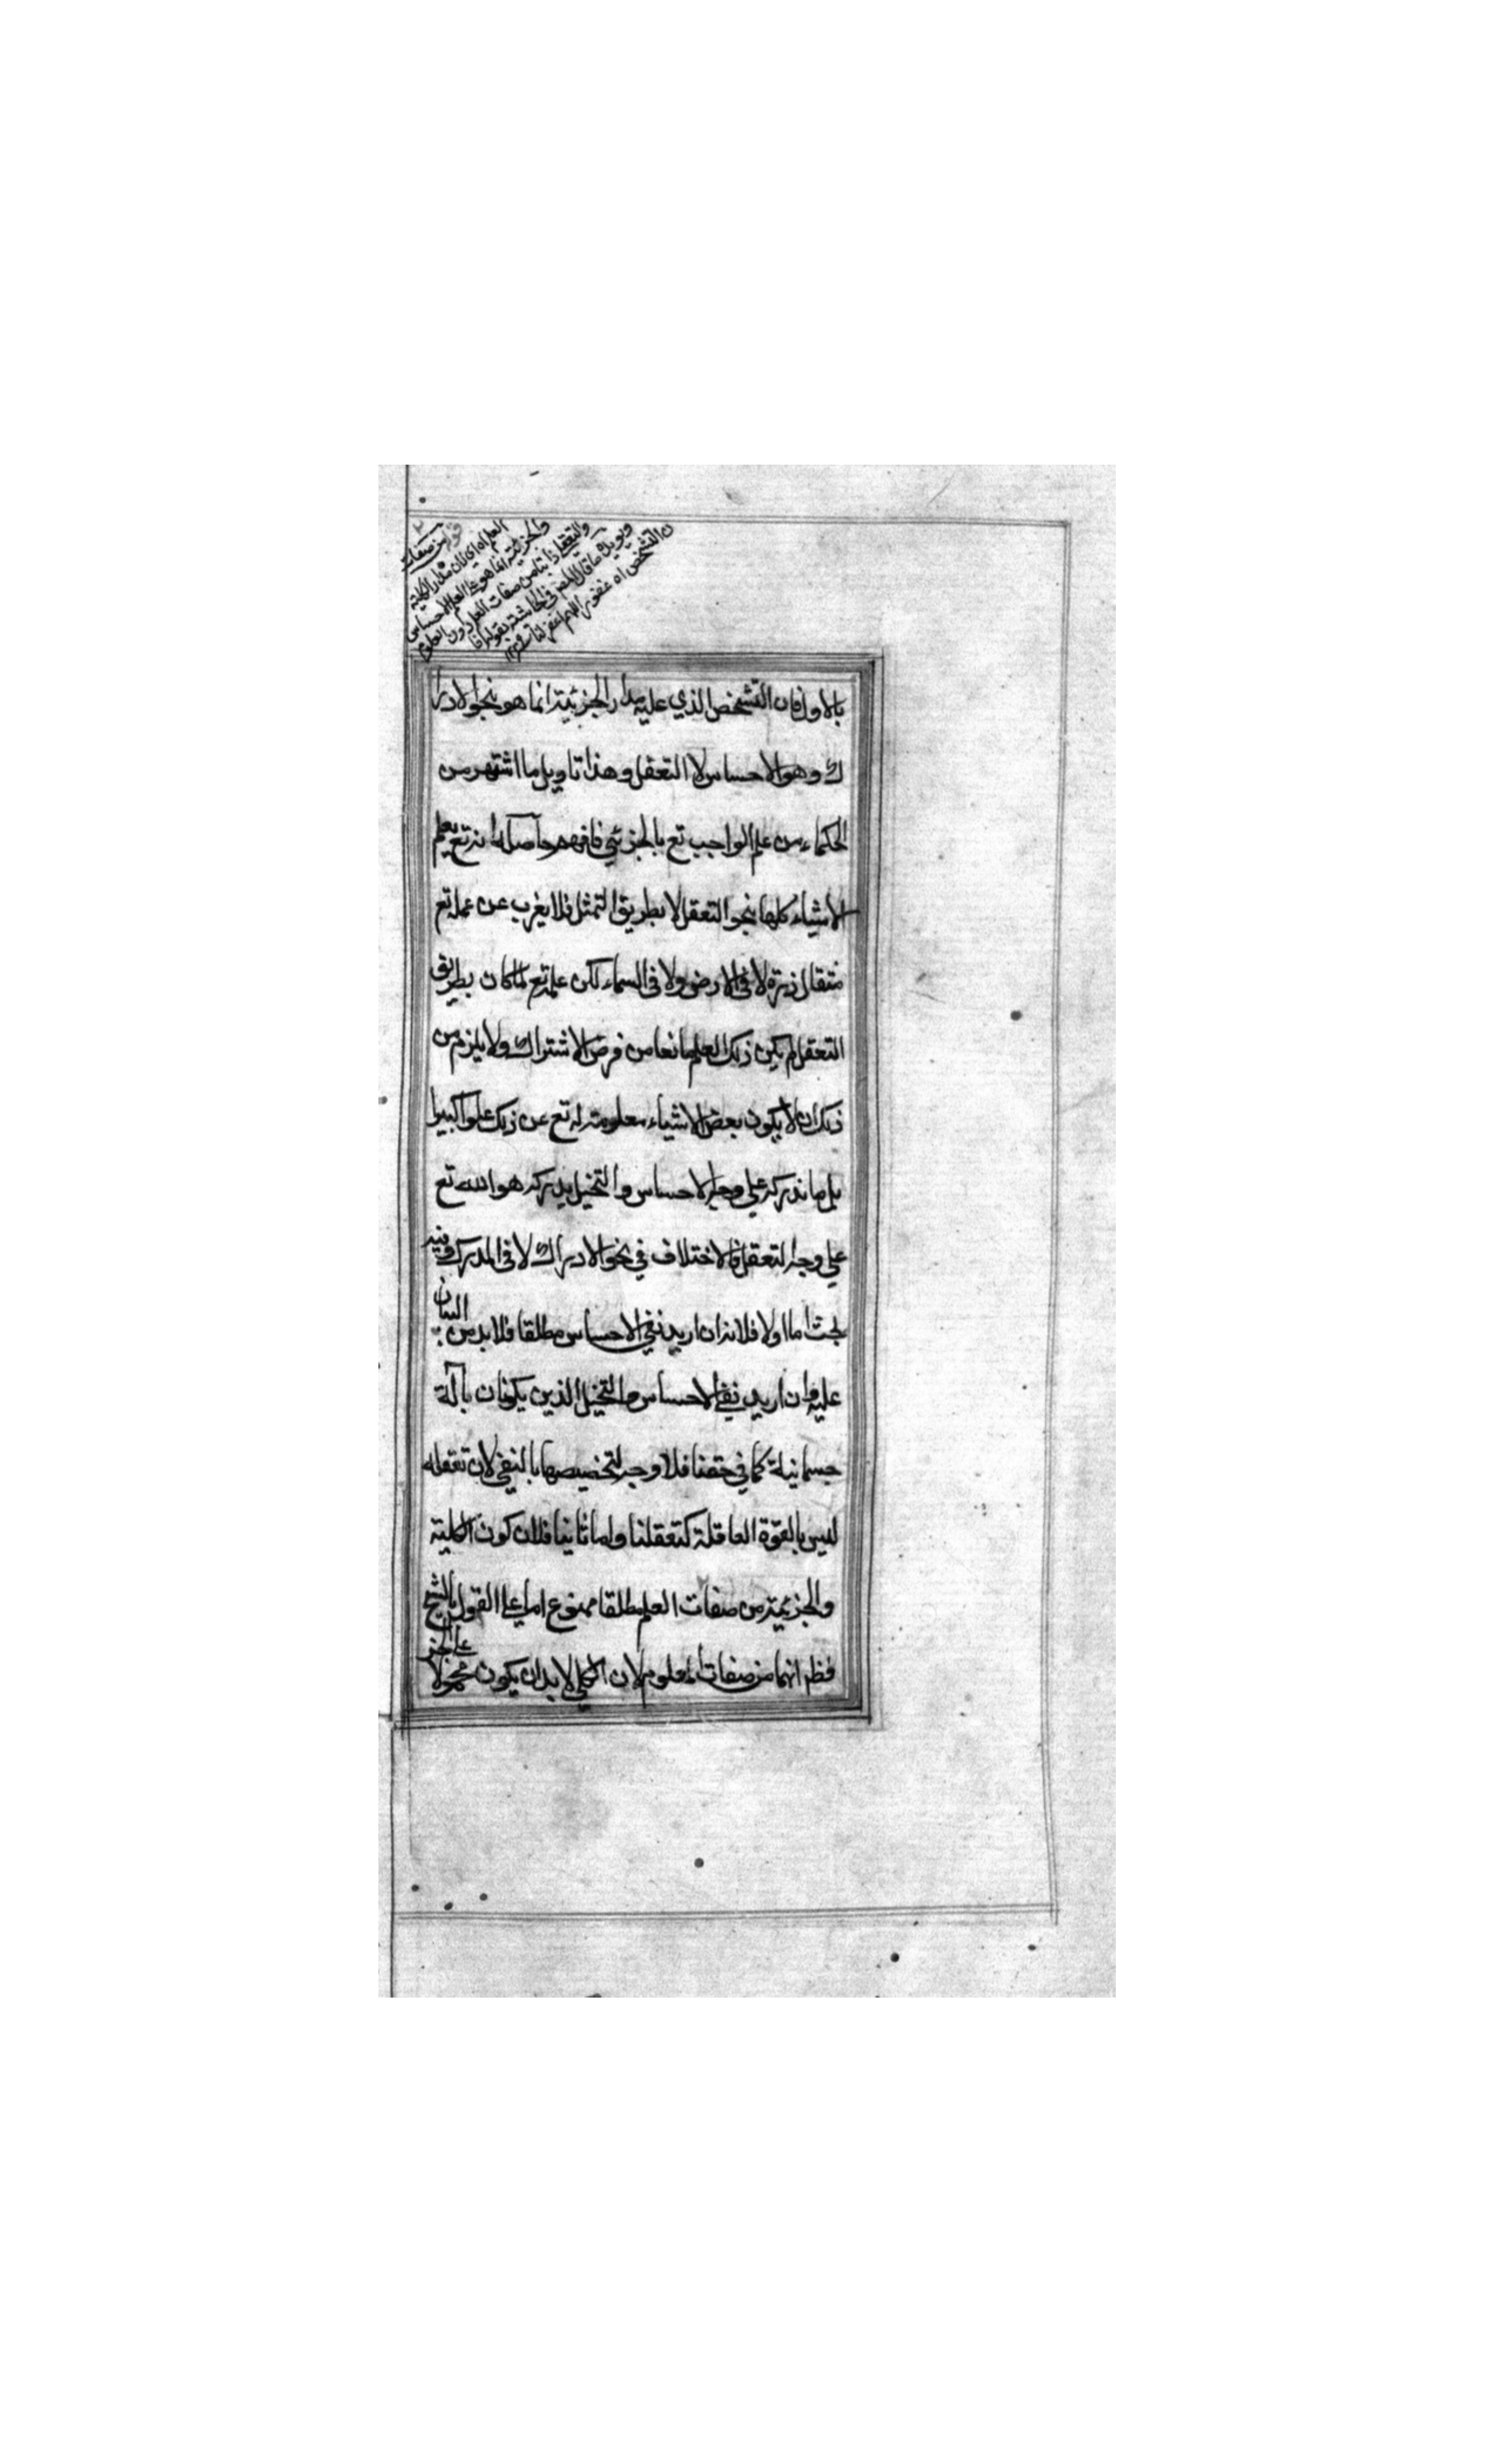 قوله من صفات
العلم اه اي لان مدار الكلية
والجزئية انما هو على العلم الاحساس
والتعقل ذاتيا من صفات العلم دون المعلوم
ويؤيده ما قال المصنف في الحاشية بقوله فا
ن التشخص اه غفور اللهم اغفر لكاتبه ١٢
بالاول فان التشخص الذي عليه مدار الجزئية انما هو نحو الادرا
ك وهو الاحساس لا التعقل وهذا تاويل ما اشتهر من
الحكماء من علم الواجب تع بالجزئي فافهم حاصله انه تع يعلم
الاشياء كلها بنحو التعقل لا بطريق التمثل فلا يغرب عن علمه تع
مثقال ذرة لا في الارض ولا في السماء لكن علمه تع لما كان بطريق
التعقل لم يكن ذلك العلم مانعا من فرض الاشتراك ولا يلزم من
ذلك ان لا يكون بعض الاشياء معلومة له تع عن ذلك علوا كبيرا
بل ما ندركه علي وجه الاحساس والتخيل يدركه هو الله تع
علي وجه التعقل فالاختلاف في نحو الادراك لا في المدرك وفيه
بحث اما اولا فلانه ان اريد نفي الاحساس مطلقا فلا بد من البيان
عليه وان اريد نفي الاحساس والتخيل الذين يكونان بآلة
جسمانية كما في حقنا فلا وجه لتخصيصها بالنفي لان تعقله
ليس بالقوة العاقلة كتعقلنا واما ثانيا فلان كون الكلية
والجزئية من صفات العلم مطلقا ممنوع اما علي القول بالشبح
فظ انهما من صفات المعلوم لان الكلي لا بد ان يكون محمولا على الجز